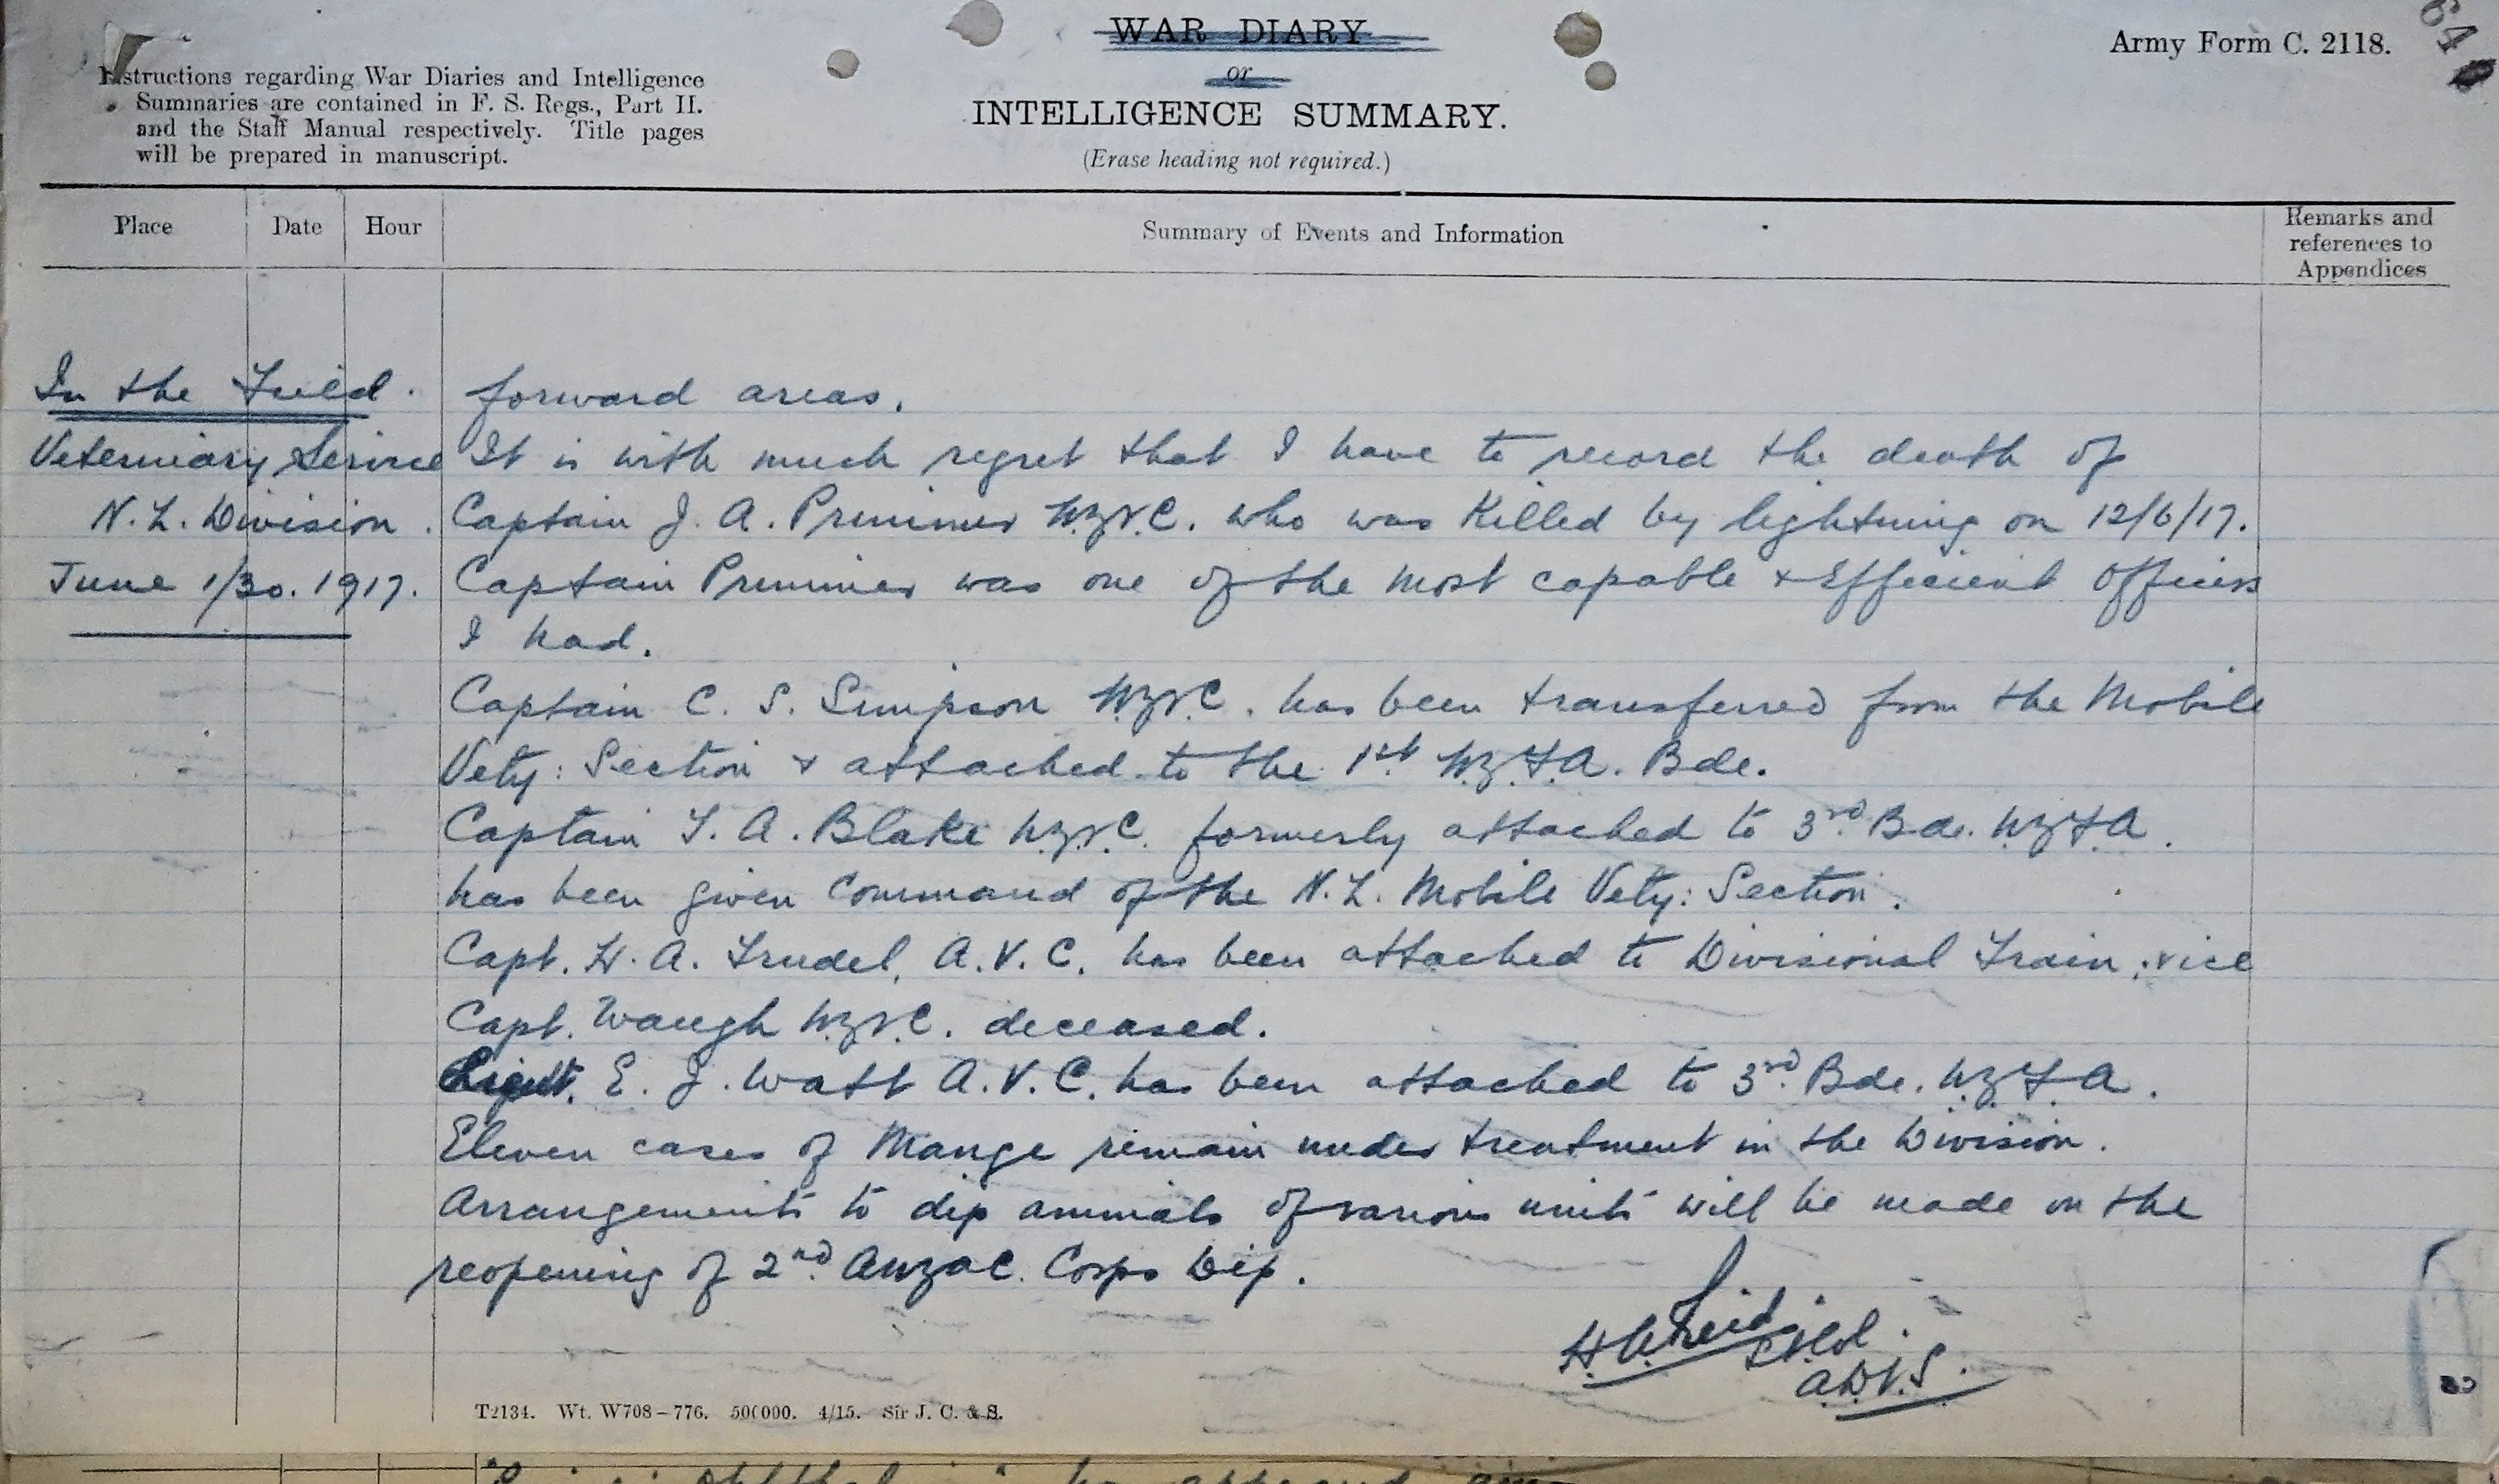 WAR DIARY
or
INTELLIGENCE SUMMARY.
(Erase heading not required.)
Army Form C. 2118.
64
Instructions regarding War Diaries and Intelligence
Summaries are contained in F. S. Regs., Part II.
and the Staff Manual respectively. Title pages
will be prepared in manuscript.
Place
Date
Hour
Summary of Events and Information
Remarks and
references to
Appendices
In the Field.
Veterinary Service
N.Z. Division.
June 1/30. 1917.
forward areas.
It is with much regret that I have to record the death of
Captain J. A. Primmer N.Z.V.C. who was killed by lightning on 12/6/17.
Captain Primmer was one of the most capable & efficient Officers
I had.
Captain C. S. Simpson N.Z.V.C. has been transferred from the Mobile
Vety: Section & attached to the 1st N.Z.F.A. Bde.
Captain T. A. Blake N.Z.V.C. formerly attached to 3rd Bde. N.Z.F.A.
has been given Command of the N.Z. Mobile Vety: Section.
Capt. H. A. Trudel, A.V.C. has been attached to Divisional Train, vice
Capt. Waugh N.Z.V.C. deceased.
Lieut. E. J. Watt A.V.C. has been attached to 3rd Bde. N.Z.F.A.
Eleven cases of Mange remain under treatment in the Division.
Arrangements to dip animals of various units will be made on the
reopening of 2nd Anzac Corps Dip.
H.A. Reid
A.D.V.S.
T2134. Wt. W708-776. 500000. 4/15. Sir J. C. & S.